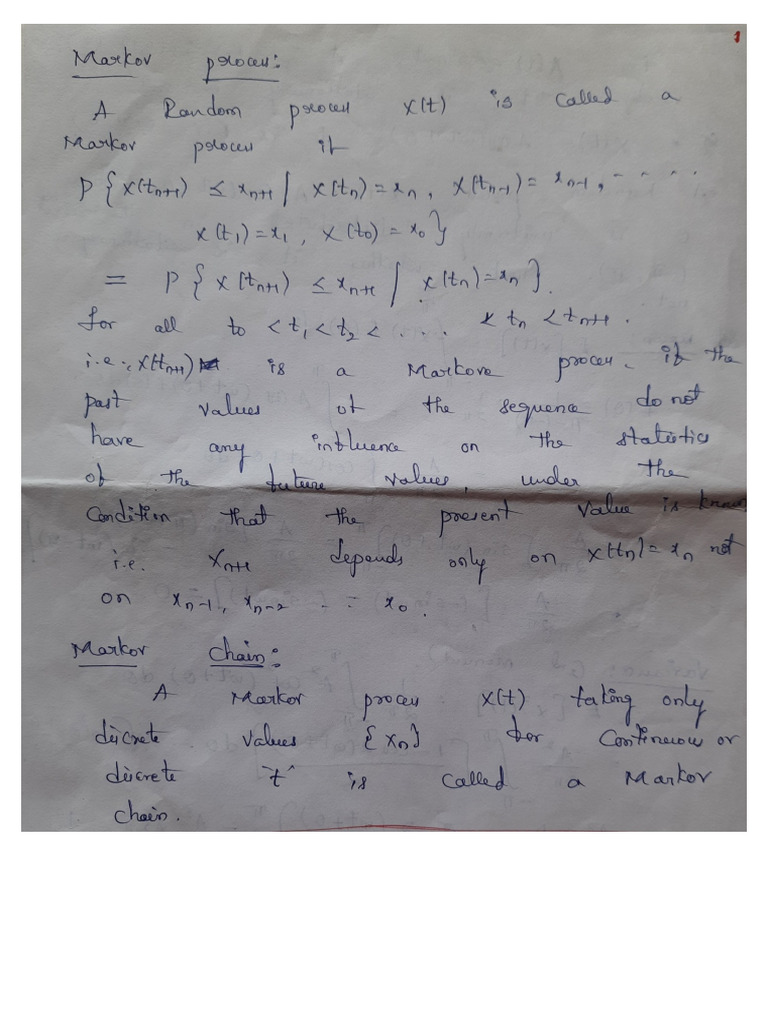 1
Markov process:
A Random process X(t) is called a
Markov process if
P{X(tn+1) ≤ xn+1 / X(tn)=xn, X(tn-1)= xn-1, - - - -
X(t1)=x1, X(t0)=x0}
= P{X(tn+1) ≤ xn+1 / X(tn)=xn}.
for all t0 <t1<t2< . . . < tn <tn+1.
i.e., X(tn+1) is a Markove process. if the
past values of the sequence do not
have any influence on the statistics
of the future values, under the
Condition that the present value is known
i.e. Xn+1 depends only on X(tn)=xn not
on xn-1, xn-2 . - - x0.
Markov Chain:
A Markov process X(t) taking only
discrete values {Xn} for Continuous or
discrete 't' is called a Markov
chain.